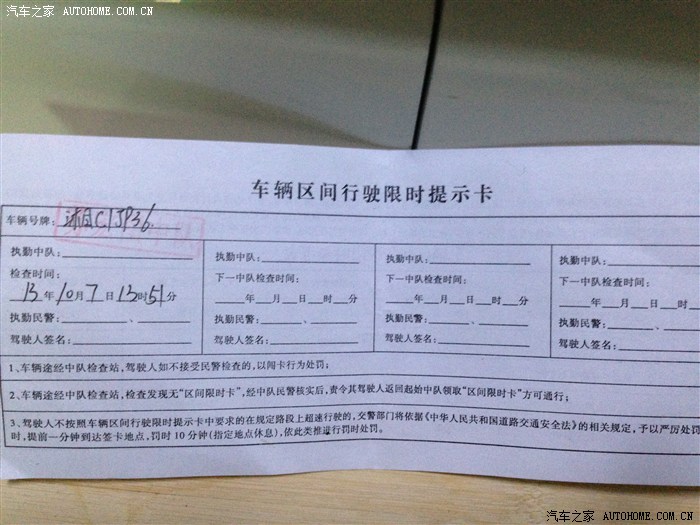 汽车之家 AUTOHOME.COM.CN
汽车之家 AUTOHOME.COM.CN
车辆区间行驶限时提示卡
车辆号牌：湘C1JP36
执勤中队：
检查时间：
13年10月7日13时51分
执勤民警：、
驾驶人签名：
执勤中队：
下一中队检查时间：
年 月 日 时 分
执勤民警：、
驾驶人签名：
执勤中队：
下一中队检查时间：
年 月 日 时 分
执勤民警：、
驾驶人签名：
执勤中队：
下一中队检查时间：
年 月 日 时
执勤民警：、
驾驶人签名：
1、车辆途经中队检查站，驾驶人如不接受民警检查的，以闯卡行为处罚；
2、车辆途经中队检查站，检查发现无“区间限时卡”，经中队民警核实后，责令其驾驶人返回起始中队领取“区间限时卡”方可通行；
3、驾驶人不按照车辆区间行驶限时提示卡中要求的在规定路段上超速行驶的，交警部门将依据《中华人民共和国道路交通安全法》的相关规定，予以严厉处罚
时，提前一分钟到达签卡地点，罚时10分钟（指定地点休息），依此类推进行罚时处罚。
汽车之家 AUTOHOME.COM.CN